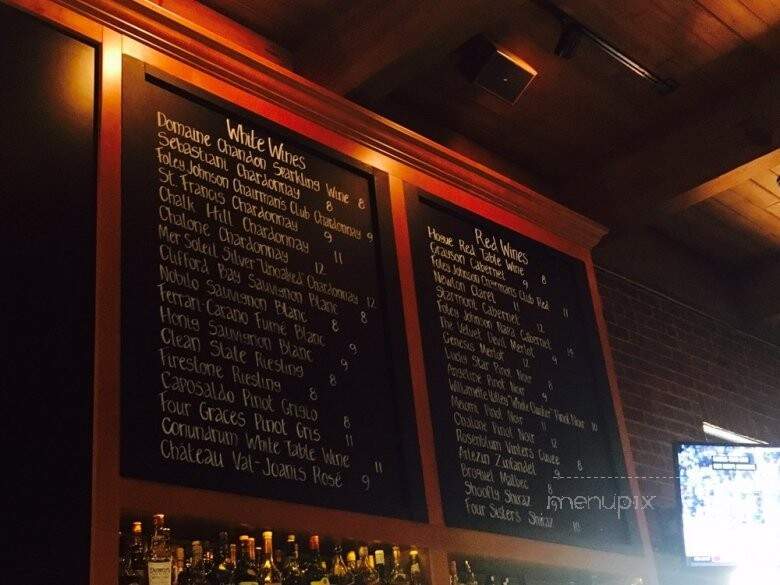 White Wines
Domaine Chandon Sparkling Wine 8
Sebastiani Chardonnay 8
Foley Johnson Chairman's Club Chardonnay 9
St. Francis Chardonnay 9
Chalk Hill Chardonnay 11
Chalone Chardonnay 12
Mer Soleil Silver "Unoaked" Chardonnay 12
Clifford Bay Sauvignon Blanc 8
Nobilo Sauvignon Blanc 8
Ferrari-Carano Fumé Blanc 9
Honig Sauvignon Blanc 9
Clean Slate Riesling 8
Firestone Riesling 8
Caposaldo Pinot Grigio 8
Four Graces Pinot Gris 11
Conundrum White Table Wine 11
Château Val-Joanis Rosé 9
Red Wines
Hogue Red Table Wine 8
Grayson Cabernet 9
Foley Johnson Chairmans Club Red 11
Newton Claret 11
Starmont Cabernet 12
Foley Johnson Napa Cabernet 14
The Velvet Devil Merlot 9
Genesis Merlot 12
Lucky Star Pinot Noir 8
Angeline Pinot Noir 9
Willamette Valley Pinot Noir 10
Meiomi Pinot Noir 11
Chalone Pinot Noir 12
Rosenblum Vintners Cuvee 8
Artezin Zinfandel 9
Broquel Malbec 8
Shoofly Shiraz
Four Sisters Shiraz 10
menupix